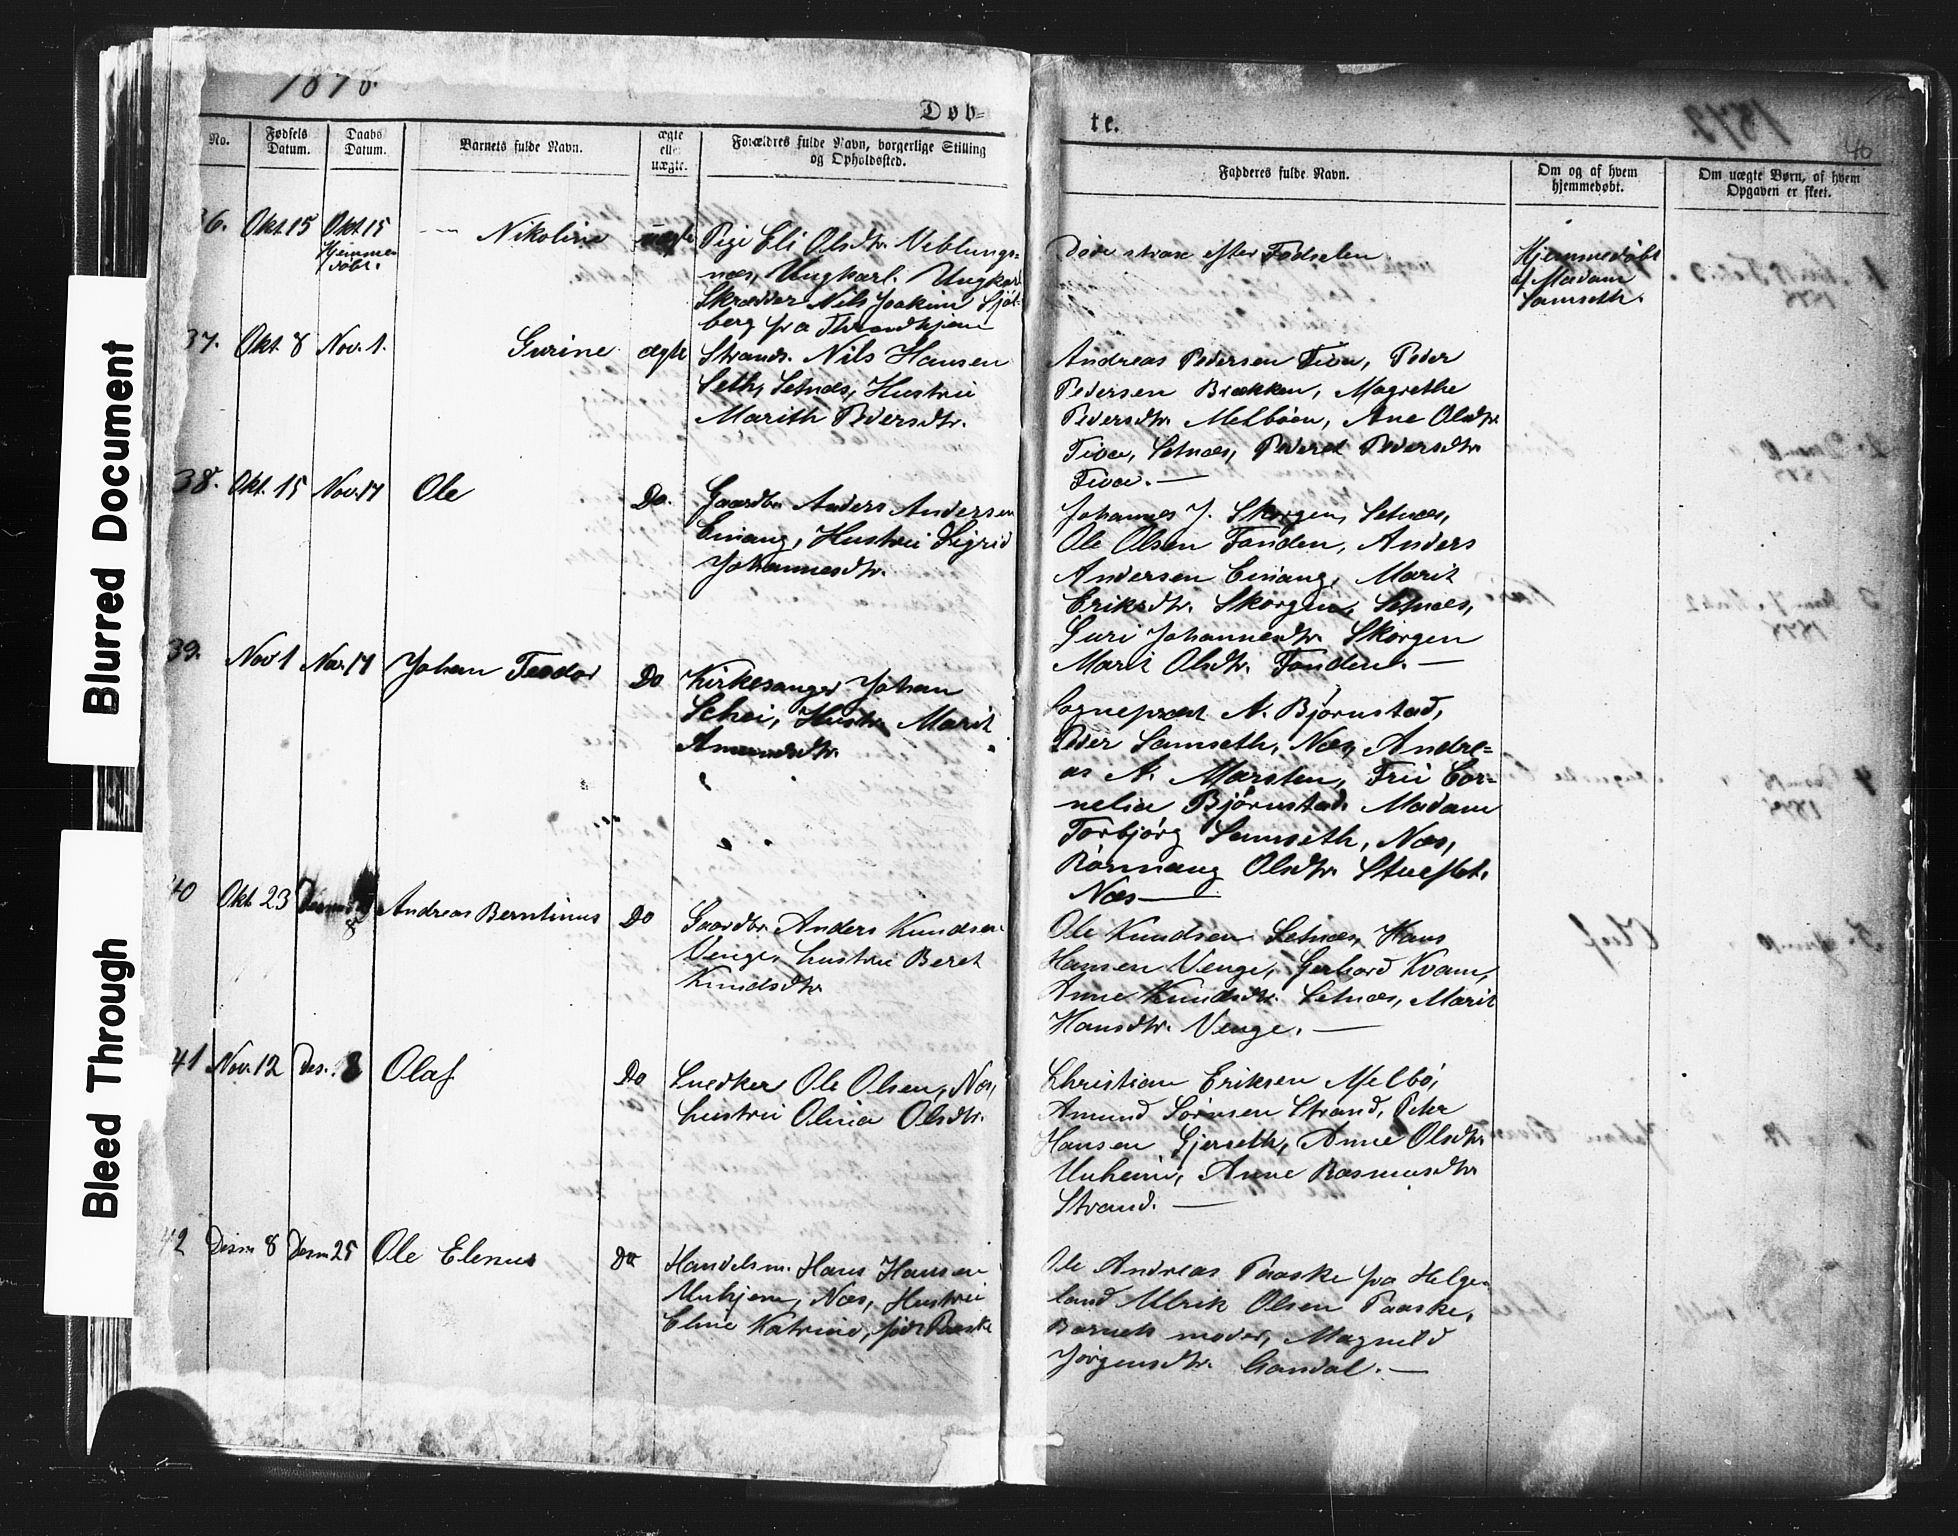 Blurred Document
Bleed Through
1878.
Døb=
te.
40
No.
Fødsels Datum.
Daabs Datum.
Barnets fulde Navn.
ægte eller uægte.
Forældres fulde Navn, borgerlige Stilling
og Opholdssted.
Fadderes fulde Navn.
Om og af hvem
hjemmedøbt.
Om uægte Børn, af hvem
Opgaven er skeet.
36. Okt 15 Okt 15 Nikoline uægte Pige Eli Olsdtr. Veblungs=
Hjemme
døbt.
næs, Ungkarl. Ungkar
Skrædder Nils Joakim Sjøl
berg fra Throndhjem
Døde strax efter Fødselen
Hjemmedøbt
af Madam
Samseth.
37. Okt. 8 Nov. 1. Gurine ægte Strands. Nils Hansen
Seth, Setnæs, Hustru
Marith Pedersdtr.
Andreas Pedersen Tiva, Peder
Pedersen Brækken, Magrethe
Pedersdtr. Melbøen, Ane Olsdtr.
Tiva, Setnæs, Pedersdtr.
Tiva. —
38. Okt. 15 Nov. 17 Ole Do. Gaardbr Anders Andersen
Einang, Hustru Sigrid
Johannesdtr.
Johannes J. Skorgen, Setnæs,
Ole Olsen Fanden, Anders
Andersen Einang, Marit
Eriksdtr. Skorgen, Setnæs,
Guri Johannesdtr. Skorgen
Marit Olsdtr. Fanden. —
39. Nov 1 Nov. 17 Johan Teodor Do Kirkesanger Johan
Schei, Hustr. Marit
Amundsdtr.
Sognepræst N. Bjørnstad,
Peder Samseth, Næs, Andre=
as A. Marsten, Fru Cor=
nelia Bjørnstad. Madam
Torbjørg Samseth, Næs,
Olsdtr.
Næs —
40 Okt. 23 8 Andreas Berntinus Do Gaardbr Anders Knudsen
Venge, hustru Beret
Knudsdtr
Ole Knudsen Setnæs, Hans
Hansen Venge, Gerhard Kvam,
Anne Knudsdtr. Setnæs, Marit
Hansdtr. Venge. —
41 Nov. 12 Des. 8 Olaf Do Snedker Ole Olsen, Næs,
hustru Olina Olsdtr.
Christian Eriksen Melbø,
Amund Sørnsen Strand, Peter
Hansen Gjerseth, Anne Olsdtr
Unheim, Anne Rasmusdtr
Strand. —
42 Desm 8 Desm 25 Ole Elenus Do Handelsm. Hans Hansen
Unhjem, Næs, Hustru
Eline Katrine, født Paaske
Ole Andreas Paaske fra Helge=
land Ulrik Olsen Paaske,
Barnets moder, Magnild
Jørgensdtr. —